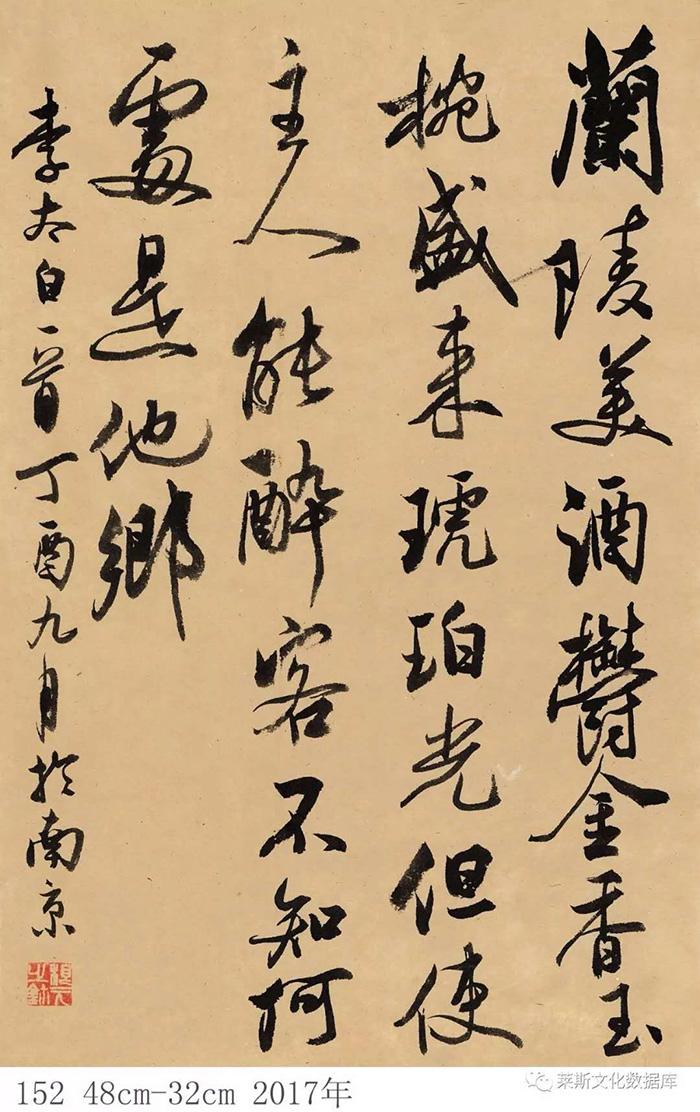 蘭陵美酒鬱金香玉
椀盛来琥珀光但使
主人能醉客不知何
處是他鄉
李太白一首丁酉九月於南京
152 48cm-32cm 2017年
莱斯文化数据库